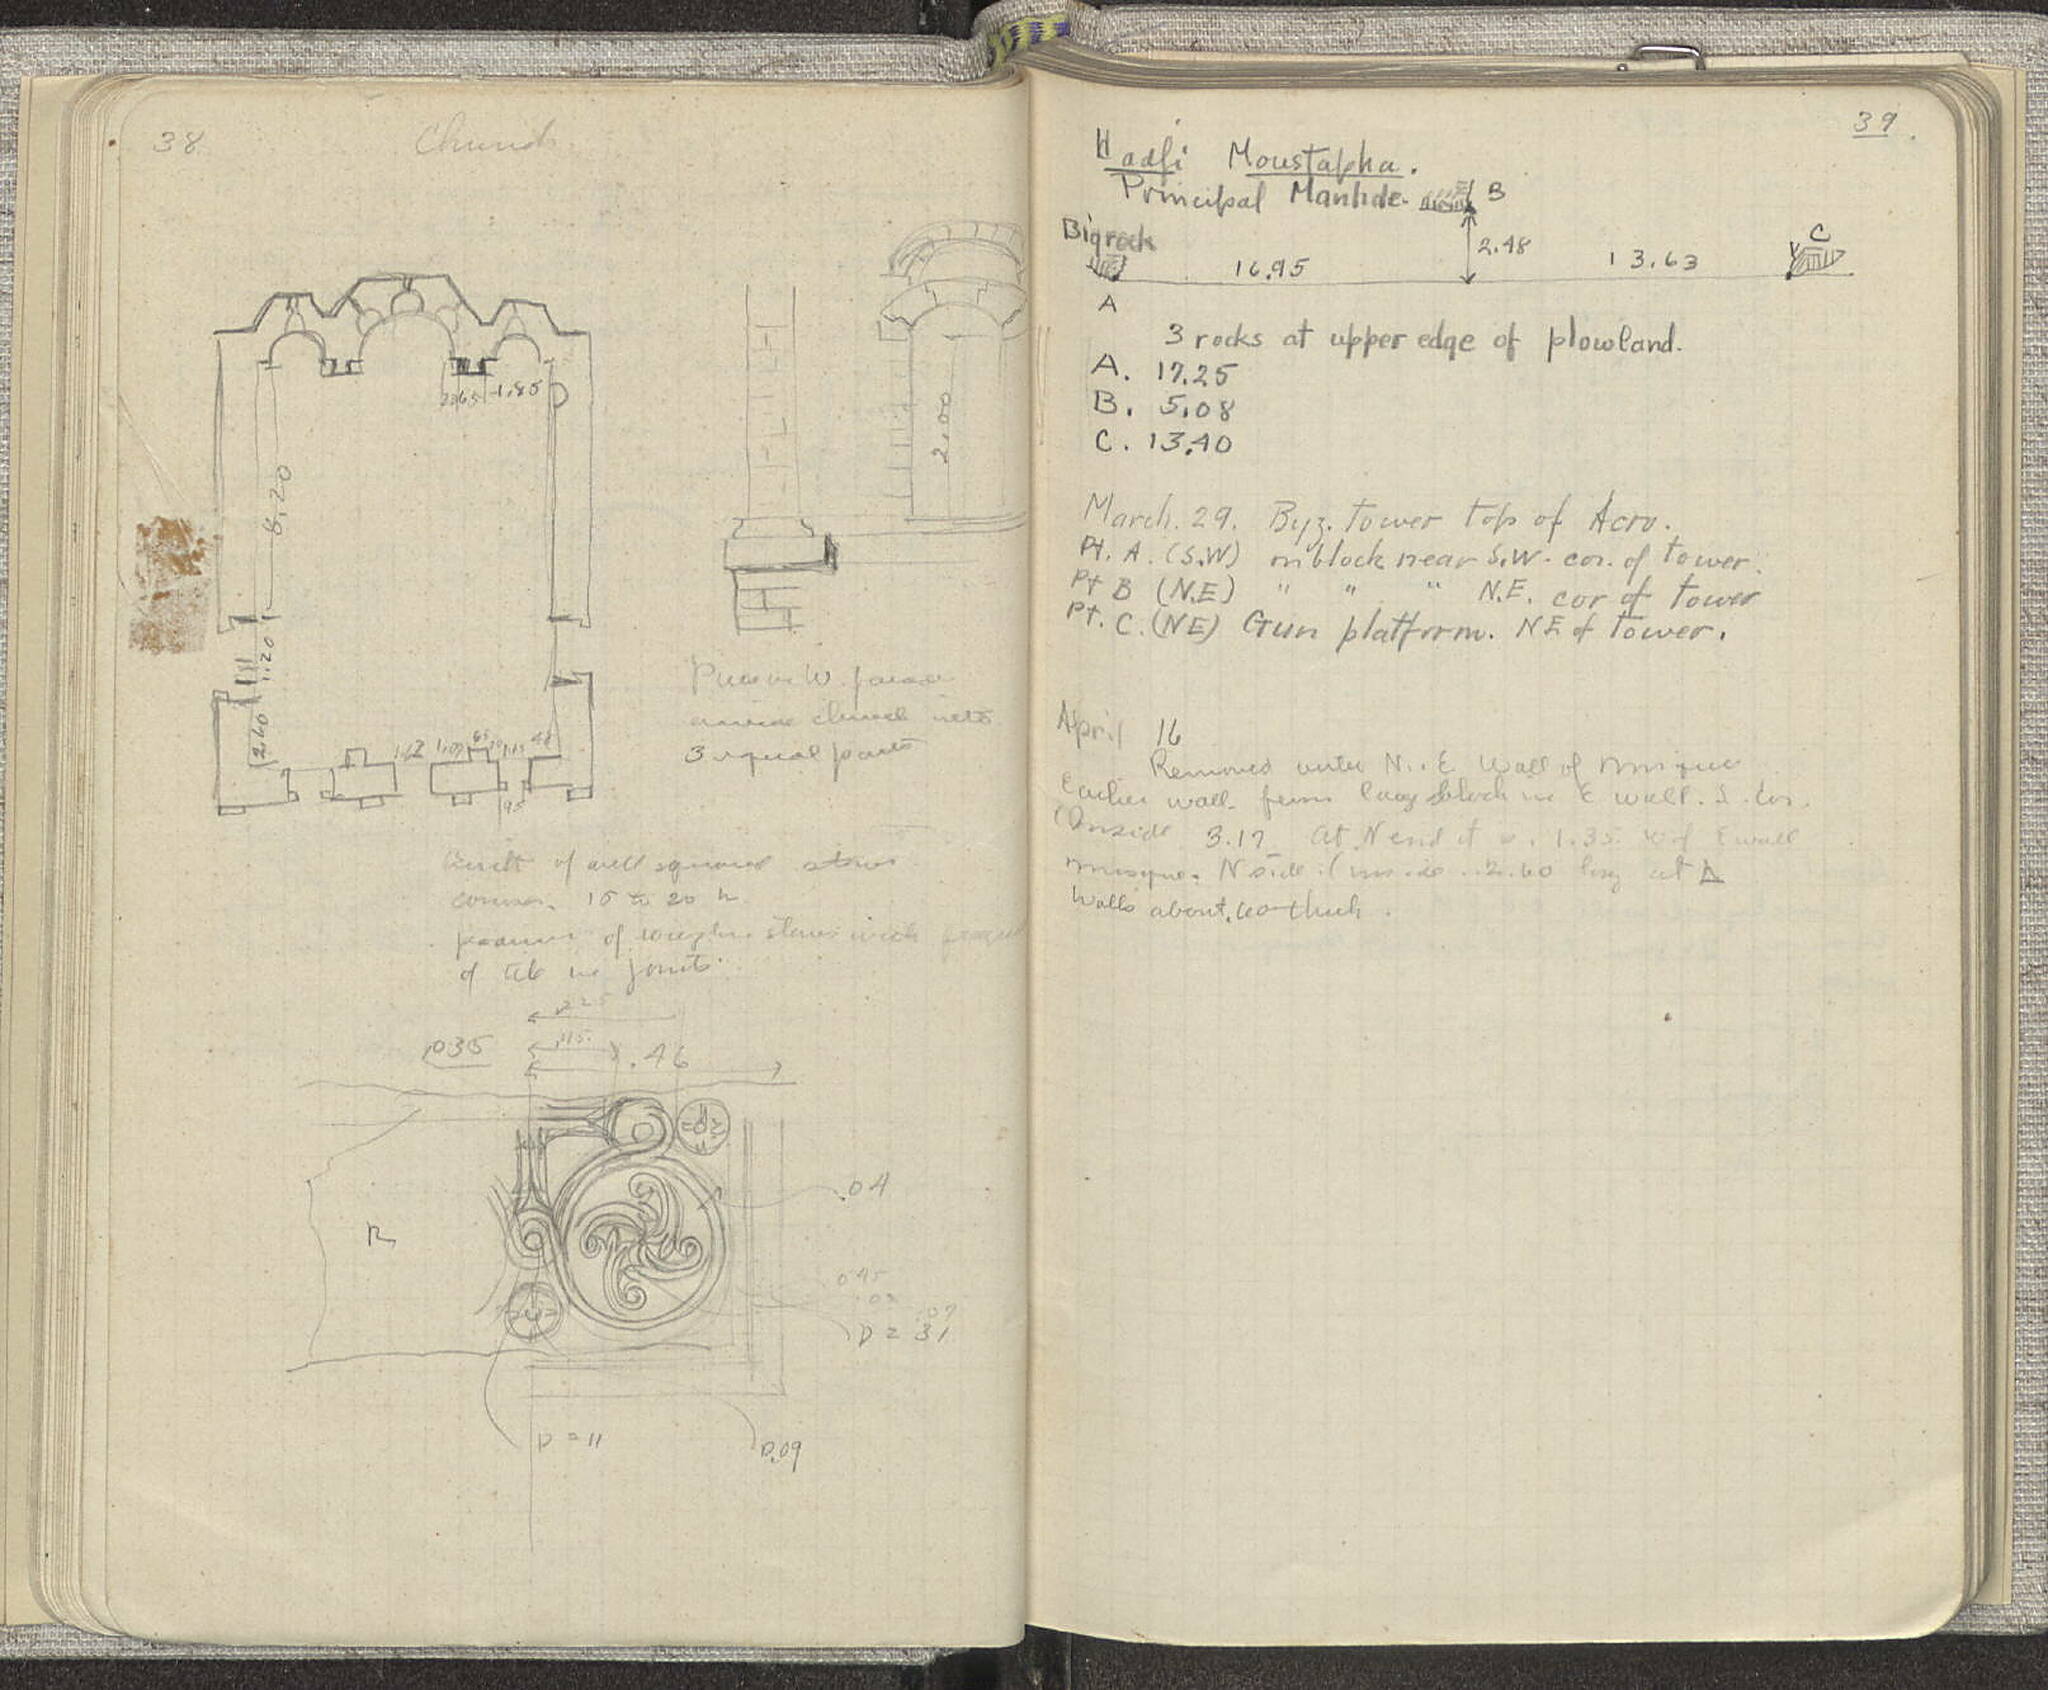 38
Church
2.65 1.85
8.20
1.20
2.60
1.62 1.09 65 1.15 48
.95
2.00
W. facade
church into
3 equal parts
Built of well squared stones
corner. 15 to 20 h.
of rougher stones with
of tile in joints.
.225
.035
.115
.46
.04
R
.045
.02
.07
D = 31
D = 11
D.09
39.
Hadji Moustapha.
Principal Manhole. B
Big rock
2.48
C
16.95
13.63
A
3 rocks at upper edge of plowland.
A. 17.25
B. 5.08
C. 13.40
March. 29. Byz. tower top of Acro.
Pt. A. (S.W) on block near S.W. cor. of tower.
Pt B (N.E) " " " N.E. cor of tower
Pt. C. (NE) Gun platform. NE of tower.
April 16
Removed under N.E. Wall of mosque
Earlier wall. from long block in E wall. S. Cor.
(Inside 3.17 At N end it is 1.35 W of E wall
mosque. N side (inside 2.60 long at
Walls about .60 thick.